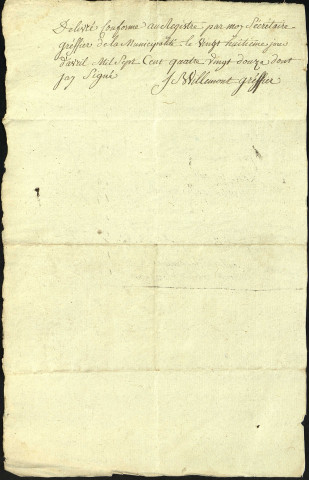 Delivré Conforme au Registre par moy Sécrétaire
gréffier de la Municipalité le vingt huitieme jour
d'avril Mil Sept Cent quatre vingt douze dont
jay Signé J Willemont gréffier